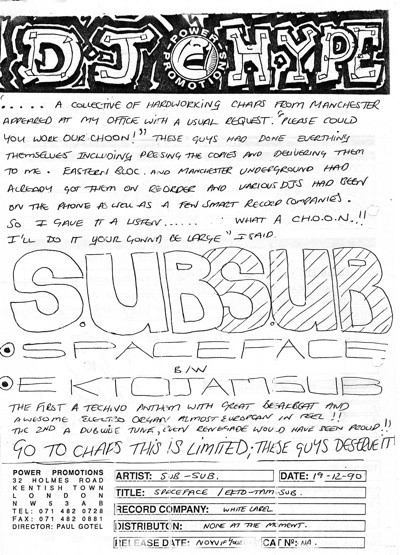 D·J HYPE
POWER PROMOTIONS
..... A COLLECTIVE OF HARDWORKING CHAPS FROM MANCHESTER
APPEARED AT MY OFFICE WITH A USUAL REQUEST. "PLEASE COULD
YOU WORK OUR CHOON!" THESE GUYS HAD DONE EVERTHING
THEMSELVES INCLUDING PRESING THE COPIES AND DELIVERING THEM
TO ME. EASTERN BLOC. AND MANCHESTER UNDERGROUND HAD
ALREADY GOT THEM ON REORDER AND VARIOUS DJS HAD BEEN
ON THE PHONE AS WELL AS A FEW SMART RECORD COMPANIES.
SO I GAVE IT A LISTEN...... WHAT A CHOON.!!
I'LL DO IT YOUR GONNA BE LARGE" I SAID.
S.UB SUB
SPACEFACE
B/W
EKTOJAMSUB
THE FIRST A TECHNO ANTHYM WITH GREAT BREAKBEAT AND
AWESOME ORGAN ALMOST EUROPEAN IN FEEL!!
THE 2ND A DUBWISE TUNE, EVEN RENEGADE WOULD HAVE BEEN PROUD!!
GO TO CHAPS THIS IS LIMITED; THESE GUYS DESERVE IT
POWER PROMOTIONS
32 HOLMES ROAD
KENTISH TOWN
LONDON
NW5 3AB
TEL: 071 482 0728
FAX: 071 482 0881
DIRECTOR: PAUL GOTEL
ARTIST: SUB-SUB. DATE: 19-12-90
TITLE: SPACEFACE / EKTO-JAM-SUB.
RECORD COMPANY: WHITE LABEL
DISTRIBUTON: NONE AT THE MOMENT.
RELEASE DATE: CAT Nº: NA.